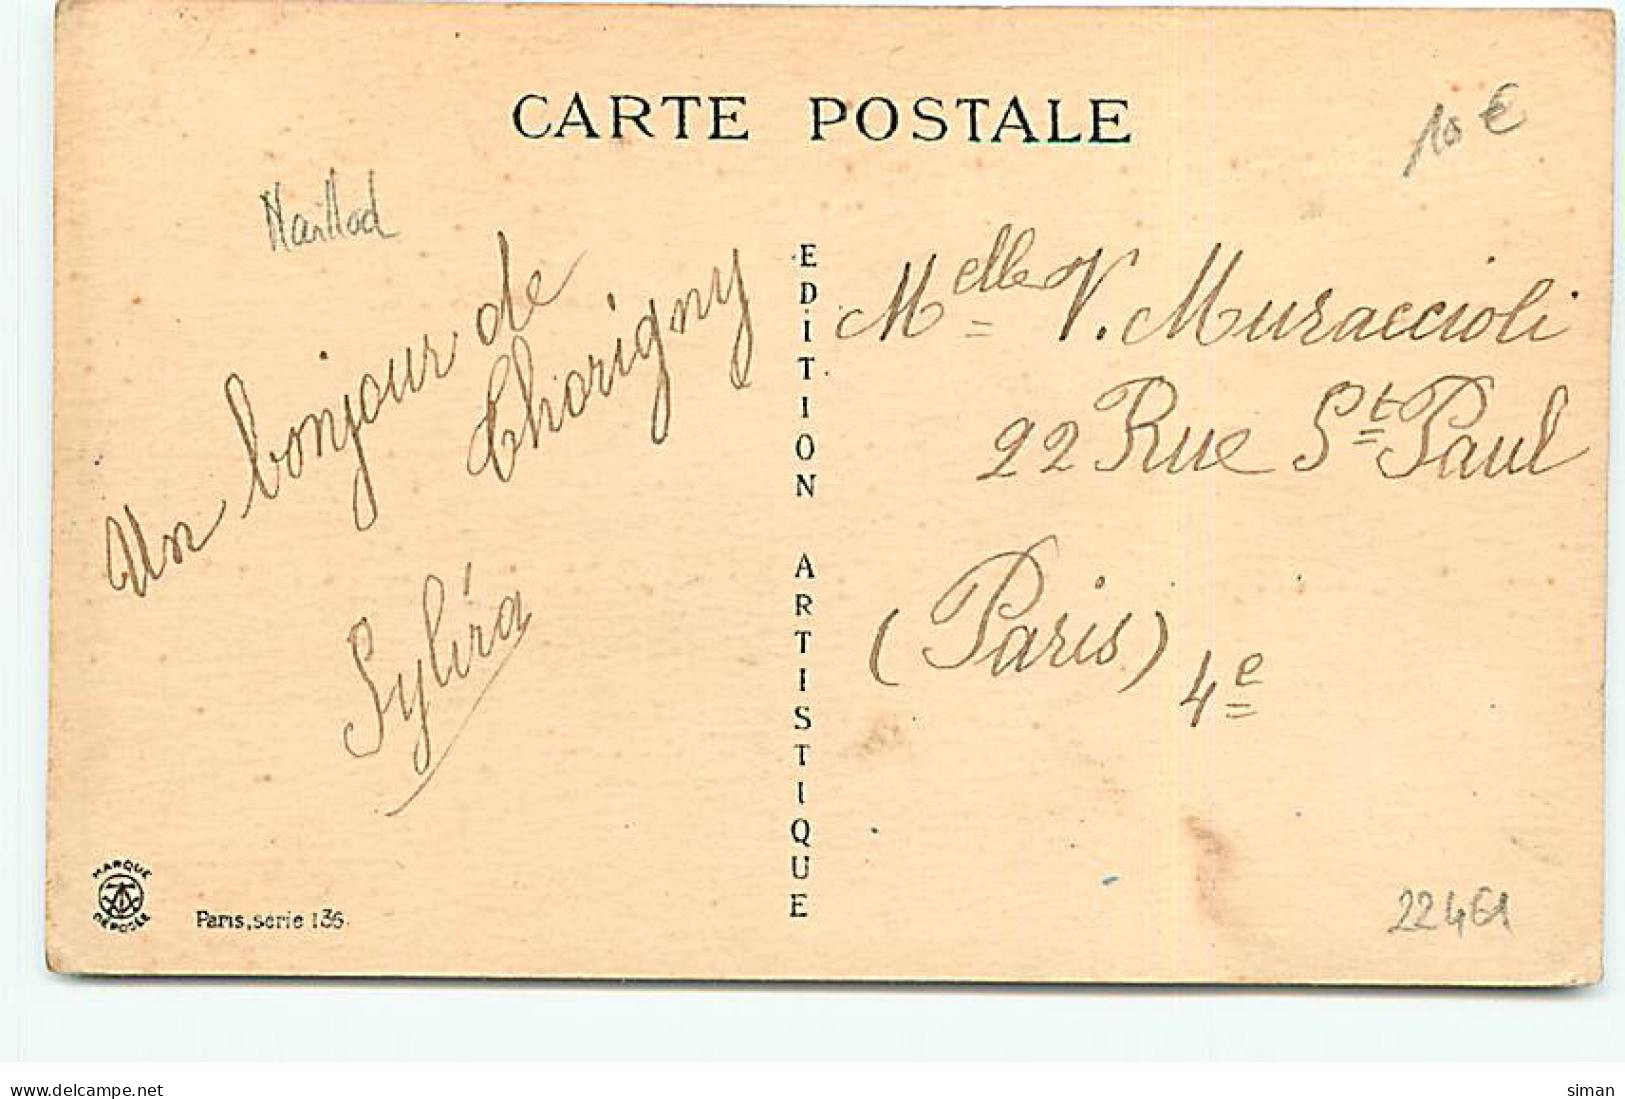 CARTE POSTALE
10 €
Maillod
Un bonjour de
Thorigny
Sylvia
EDITION ARTISTIQUE
Melle V. Muraccioli
22 Rue St Paul
(Paris) 4e
MARQUE
DÉPOSÉE
Paris, série 136.
22461
www.delcampe.net
siman